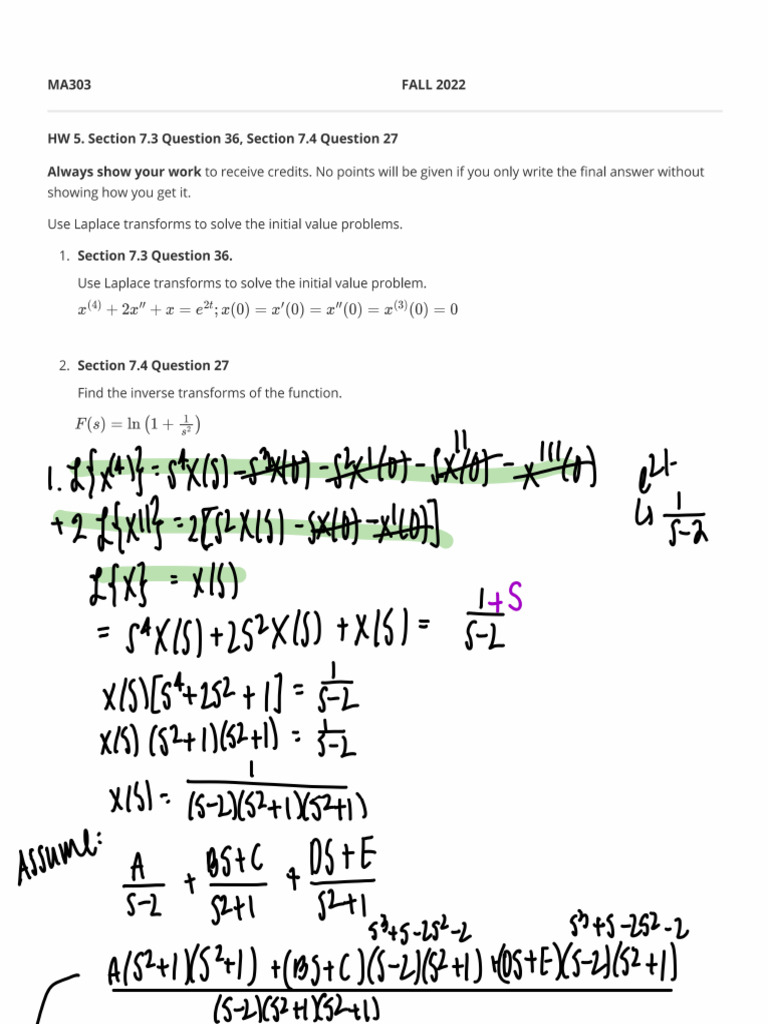 MA303 FALL 2022
HW 5. Section 7.3 Question 36, Section 7.4 Question 27
Always show your work to receive credits. No points will be given if you only write the final answer without
showing how you get it.
Use Laplace transforms to solve the initial value problems.
1. Section 7.3 Question 36.
Use Laplace transforms to solve the initial value problem.
x^(4) + 2x″ + x = e^{2t}; x(0) = x′(0) = x″(0) = x^(3)(0) = 0
2. Section 7.4 Question 27
Find the inverse transforms of the function.
F(s) = ln (1 + 1/s²)
1. ℒ{x^(4)} = s⁴X(s) - s³x(0) - s²x'(0) - sx''(0) - x'''(0) e^{2t}
+ 2 ℒ{x''} = 2[s²X(s) - sx(0) - x'(0)] ↳ 1/(s-2)
ℒ{x} = X(s)
= s⁴X(s) + 2s²X(s) + X(s) = (1+s)/(s-2)
X(s)[s⁴+2s²+1] = 1/(s-2)
X(s)(s²+1)(s²+1) = 1/(s-2)
X(s) = 1/((s-2)(s²+1)(s²+1))
Assume:
A/(s-2) + (Bs+C)/(s²+1) + (Ds+E)/(s²+1)
s³+s-2s²-2 s³+s-2s²-2
A(s²+1)(s²+1) + (Bs+C)(s-2)(s²+1) + (Ds+E)(s-2)(s²+1)
(s-2)(s²+1)(s²+1)